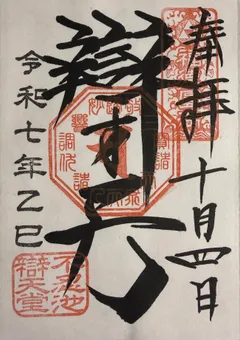 奉拝
十月四日
辯才天
令和七年乙巳
不忍池
辯天堂